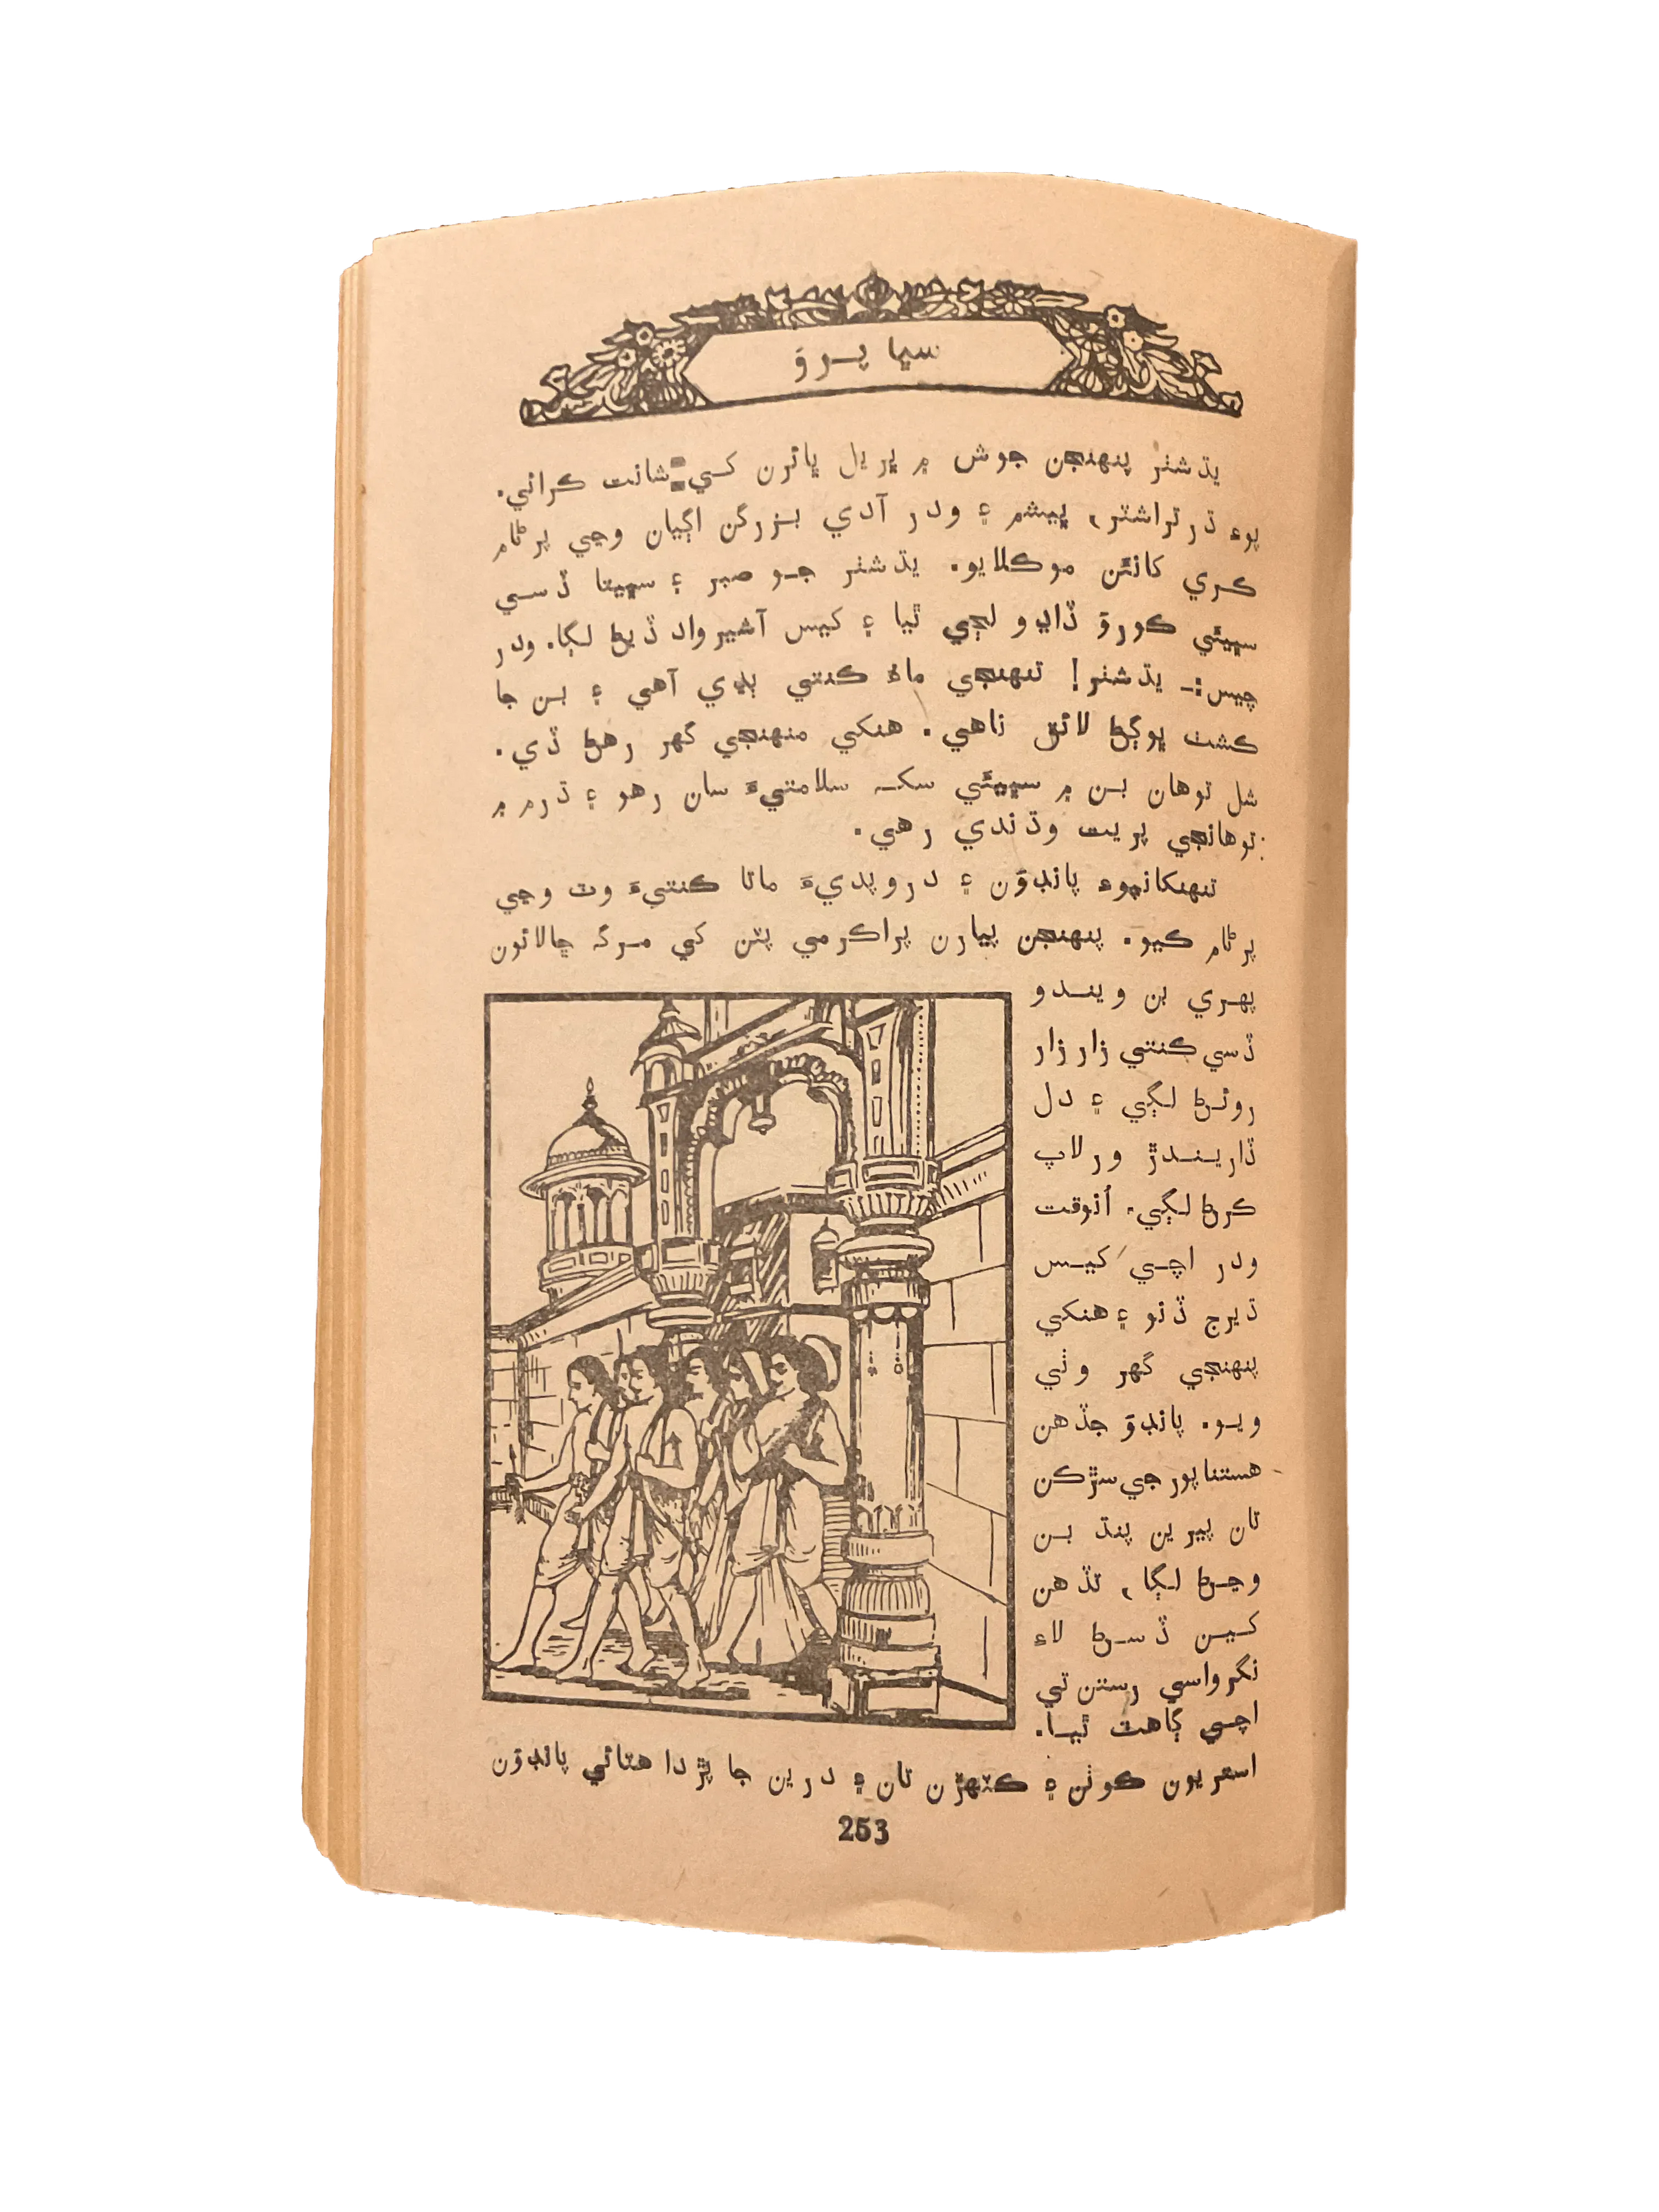 سڀا پرؤ
يڌشٽر پنهنجن جوش ۾ ڀريل ڀائرن کي شانت ڪرائي.
پوءِ ڌرتراشٽر، ڀيشم ۽ ودر آدي بزرگن اڳيان وڃي پرڻام
ڪري کانئن موڪلايو. يڌشٽر جو صبر ۽ سڀيتا ڏسي
سڀئي ڪورؤ ڏاڍو لڄي ٿيا ۽ کيس آشيرواد ڏيڻ لڳا. ودر
چيس:- يڌشٽر! تنهنجي ماءُ ڪنتي ٻڍي آهي ۽ بن جا
ڪشٽ ڀوڳڻ لائق ناهي. هنکي منهنجي گهر رهڻ ڏي.
شل توهان بن ۾ سڀيئي سک سلامتيءَ سان رهو ۽ ڌرم ۾
توهانجي پريت وڌندي رهي.
تنهنکانپوءِ پانڊوَن ۽ دروپديءَ ماتا ڪنتيءَ وٽ وڃي
پرڻام ڪيو. پنهنجن پيارن پراڪرمي پٽن کي مرگ ڇالائون
پهري بن ويندو
ڏسي ڪنتي زار زار
روئڻ لڳي ۽ دل
ڏاريندڙ ورلاپ
ڪرڻ لڳي. اُنوقت
ودر اچي کيس
ڌيرج ڏنو ۽ هنکي
پنهنجي گهر وٺي
ويو. پانڊوَ جڏهن
هستناپور جي سڙڪن
تان پيرين پنڌ بن
وڃڻ لڳا، تڏهن
کين ڏسڻ لاءِ
نگر واسي رستن تي
اچي ڳاهٽ ٿيا.
استريون ڪوٺن ۽ ڪٽهڙن تان ۽ درين جا پڙدا هٽائي پانڊوَن
253